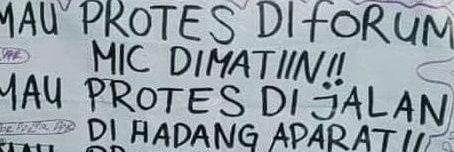 MAU PROTES DI FORUM
MIC DIMATIIN!!
MAU PROTES DI JALAN
DI HADANG APARAT!!